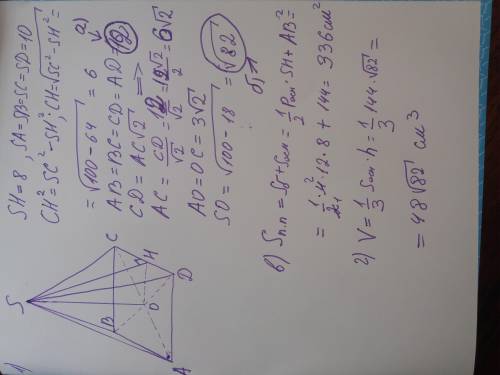 1)
S
B
C
H
O
A
D
SH = 8 , SA=SB=SC=SD=10
CH² = SC² - SH² ; CH = √SC² - SH² =
= √100-64 = 6 а)
AB = BC = CD = AD = 12
CD = AC√2 =>
AC = CD/√2 = 12/√2 = 12√2/2 = 6√2
AO = OC = 3√2
SO = √100-18 = √82
б)
в) Sп.п = Sб + Sосн = 1/2 Pосн · SH + AB² =
= 1/2 · 4 · 12 · 8 + 144 = 336 см²
г) V = 1/3 Sосн · h = 1/3 144 · √82 =
= 48√82 см³